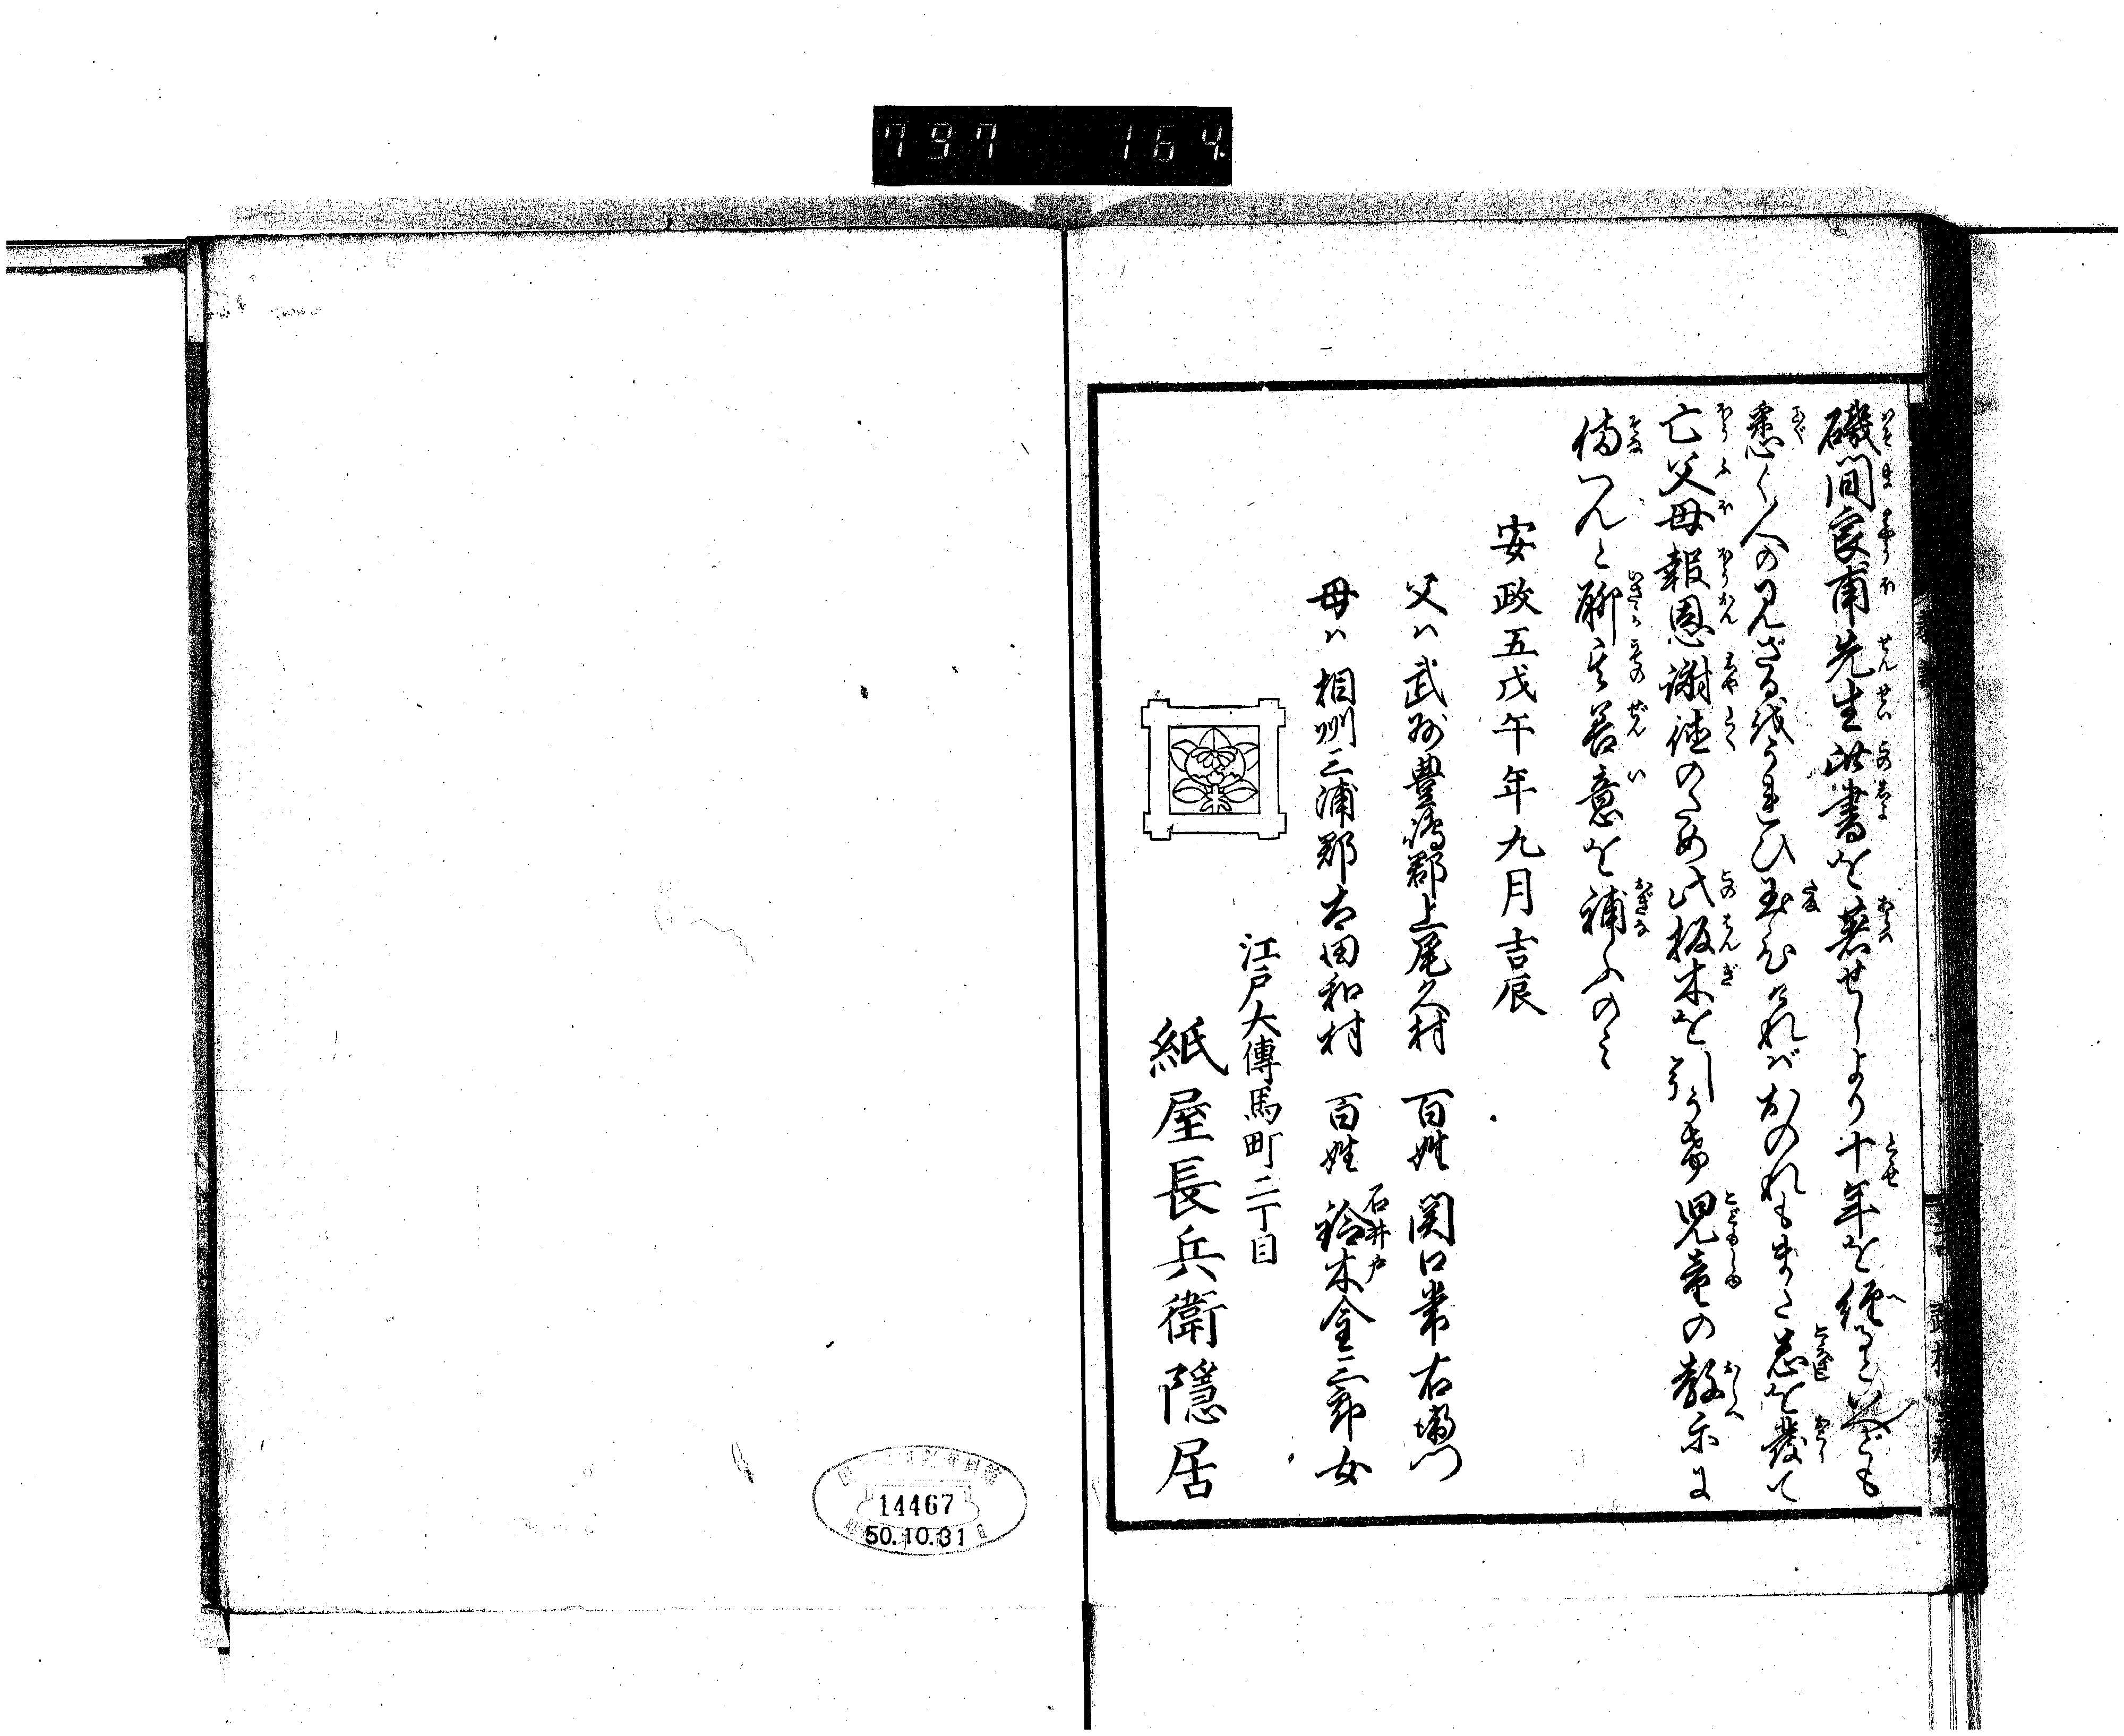 797 164
磯間良甫先生此書を著せしより十年を経るといへども
悉く人の見ざる祓うれひ玉ひけれバおのれもまた志を發て
亡父母報恩謝徳のため此板木を引うけ児童の教示に
備へんと聊其善意を補ふのミ
安政五戊午年九月吉辰
父ハ武州豊嶋郡上尾久村 百姓 関口常右衛門
母ハ相州三浦郡太田和村 百姓 石井戸 鈴木金三郎女
江戸大傳馬町二丁目
紙屋長兵衛隠居
14467
50.10.31